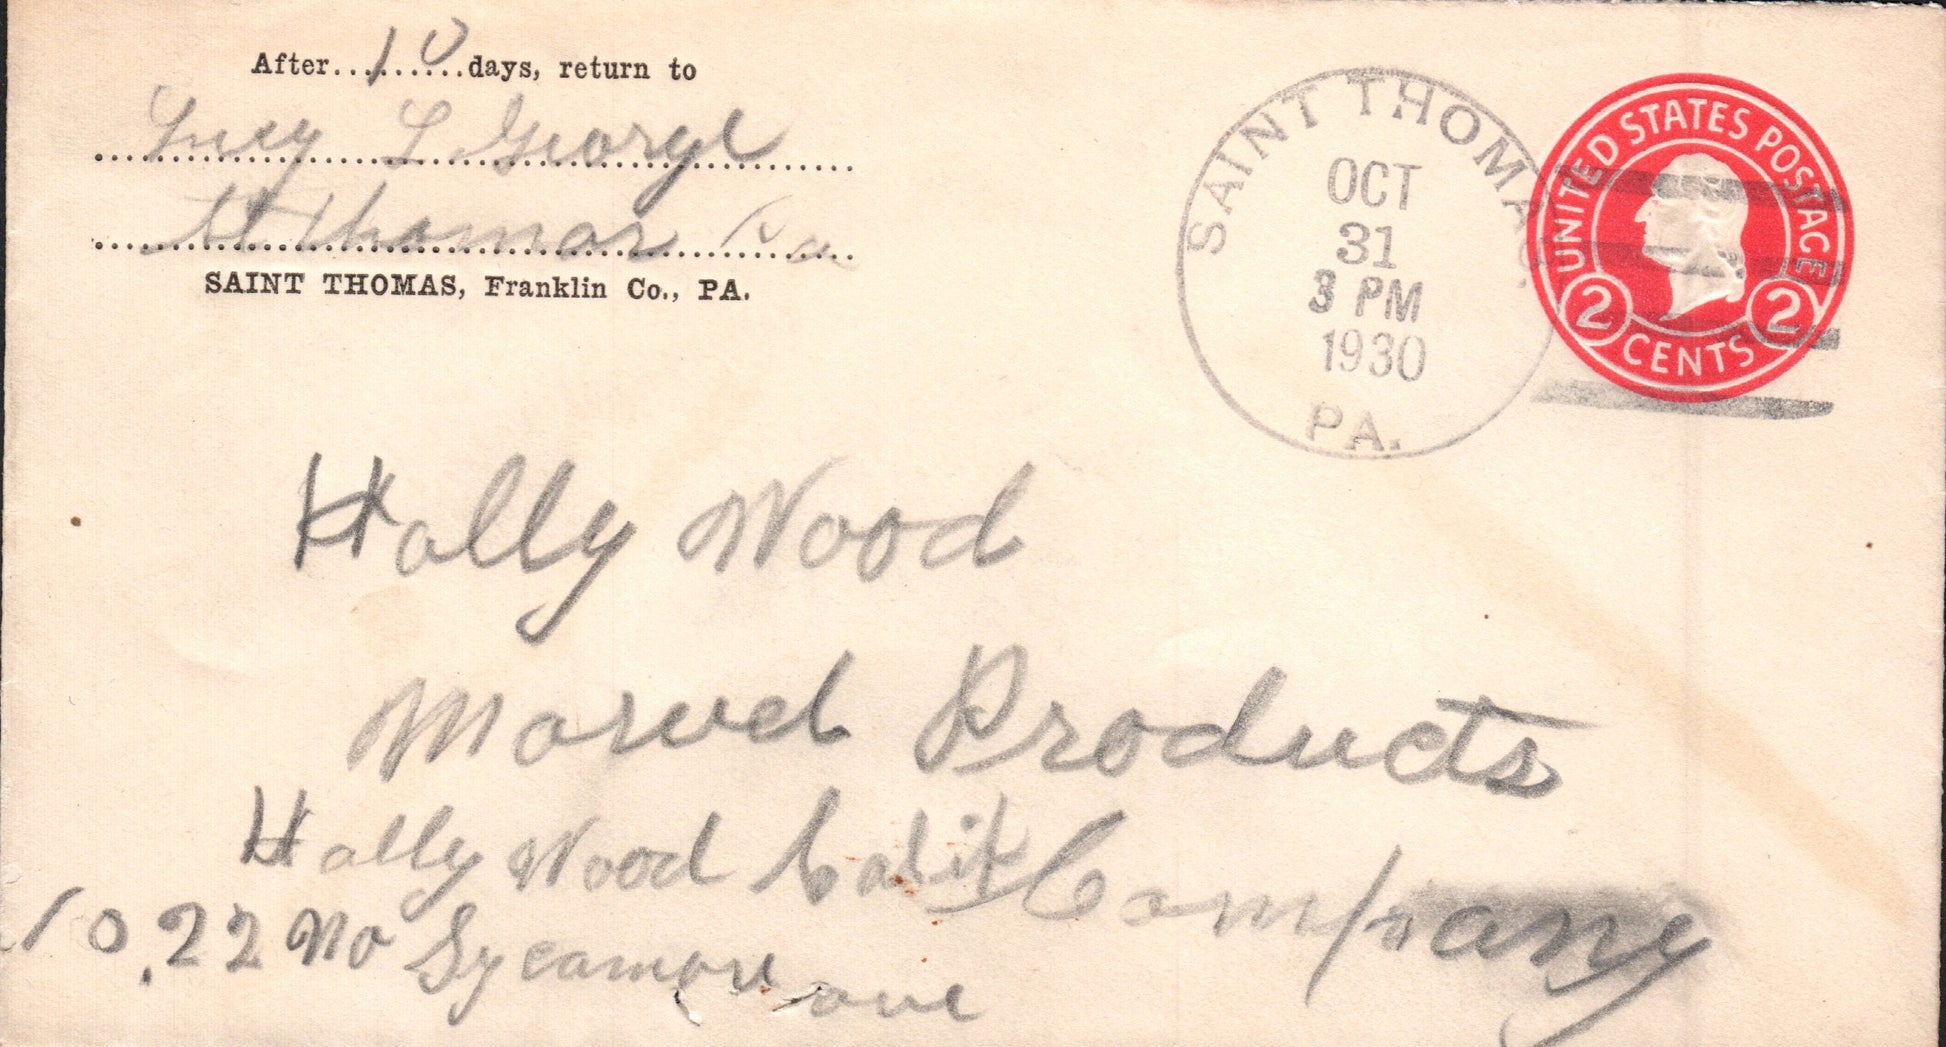 After 10 days, return to
Lucy L. George
St Thomas Pa
SAINT THOMAS, Franklin Co., PA.
SAINT THOMAS,
OCT
31
3 PM
1930
PA.
UNITED STATES POSTAGE
2 CENTS 2
Holly Wood
Marvel Products
Holly Wood Calif Company
1022 No Sycamore ave